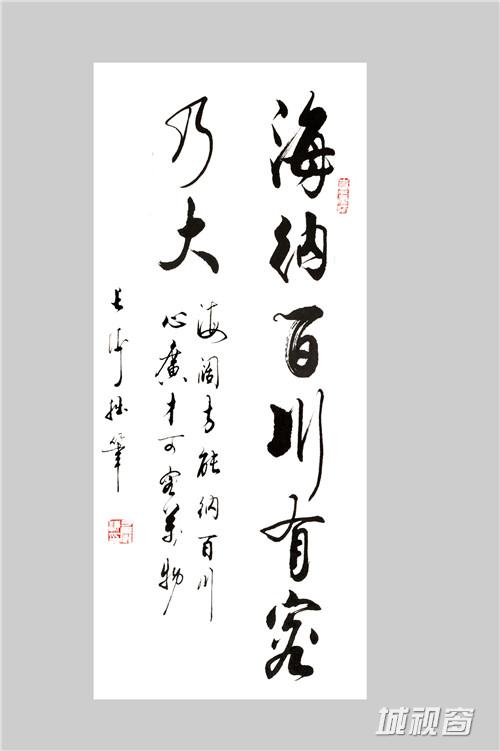 海纳百川有容
乃大
海阔方能纳百川
心廣才可容萬物
拙筆
城视窗